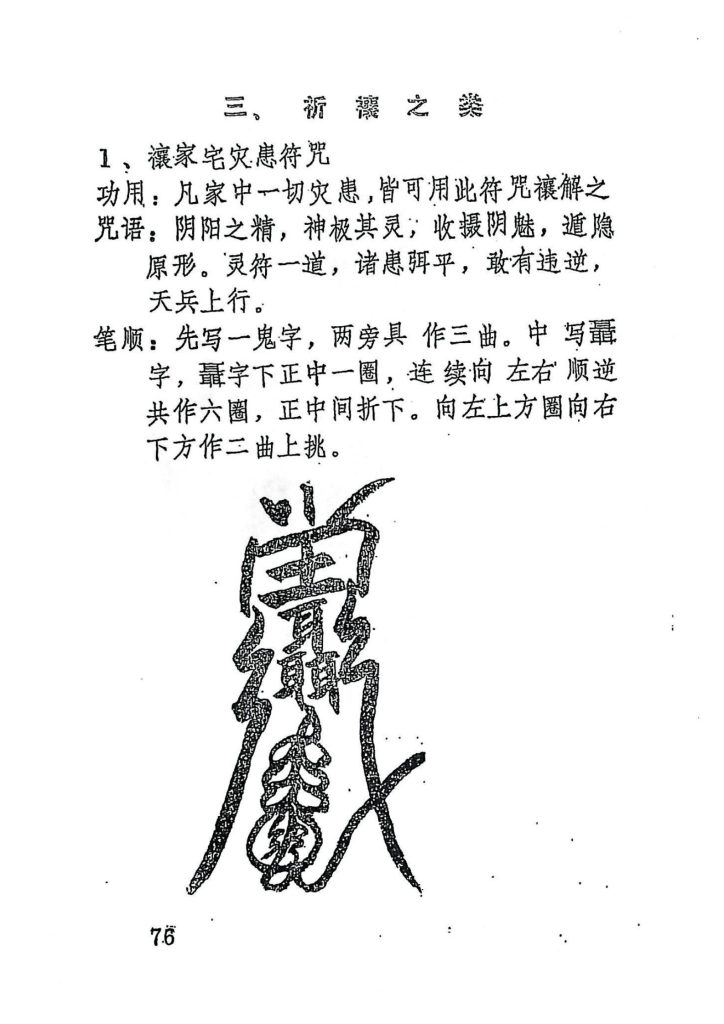 三、祈禳之类
1、禳家宅灾患符咒
功用：凡家中一切灾患，皆可用此符咒禳解之
咒语：阴阳之精，神极其灵，收摄阴魅，遁隐
原形。灵符一道，诸患弭平，敢有违逆，
天兵上行。
笔顺：先写一鬼字，两旁具作三曲。中写
字，字下正中一圈，连续向左右顺逆
共作六圈，正中间折下。向左上方圈向右
下方作二曲上挑。
76